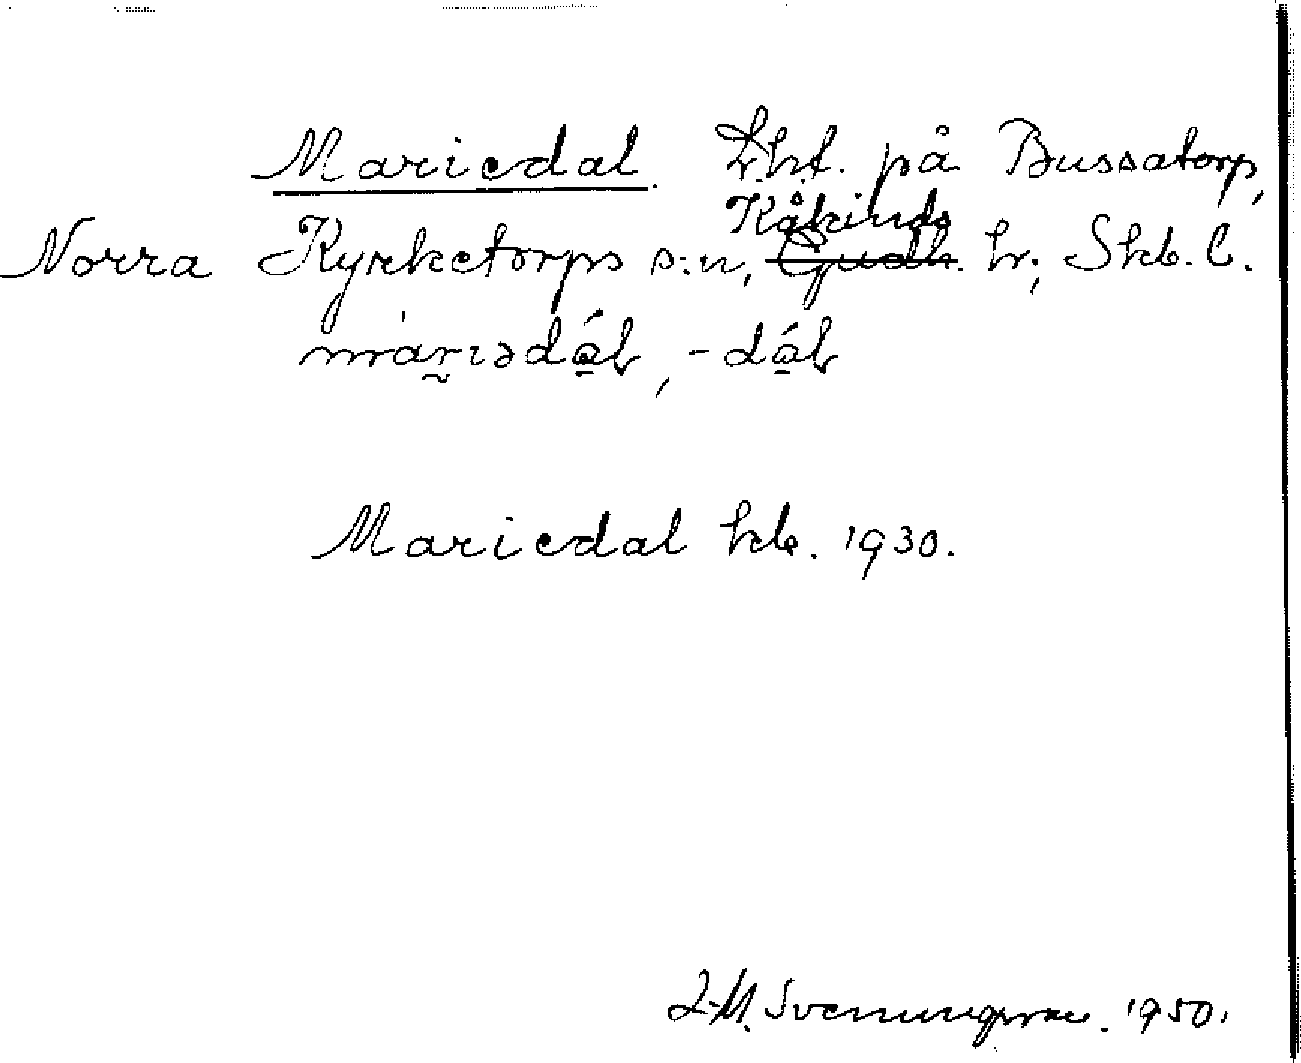 Mariedal. Lht. på Bussatorp,
Norra Kyrketorps s:n, Kåkinds hr; Skb. l.
màr̰ıədá̱l, -dá̱l
Mariedal kb. 1930.
Svenungsson. 1950.